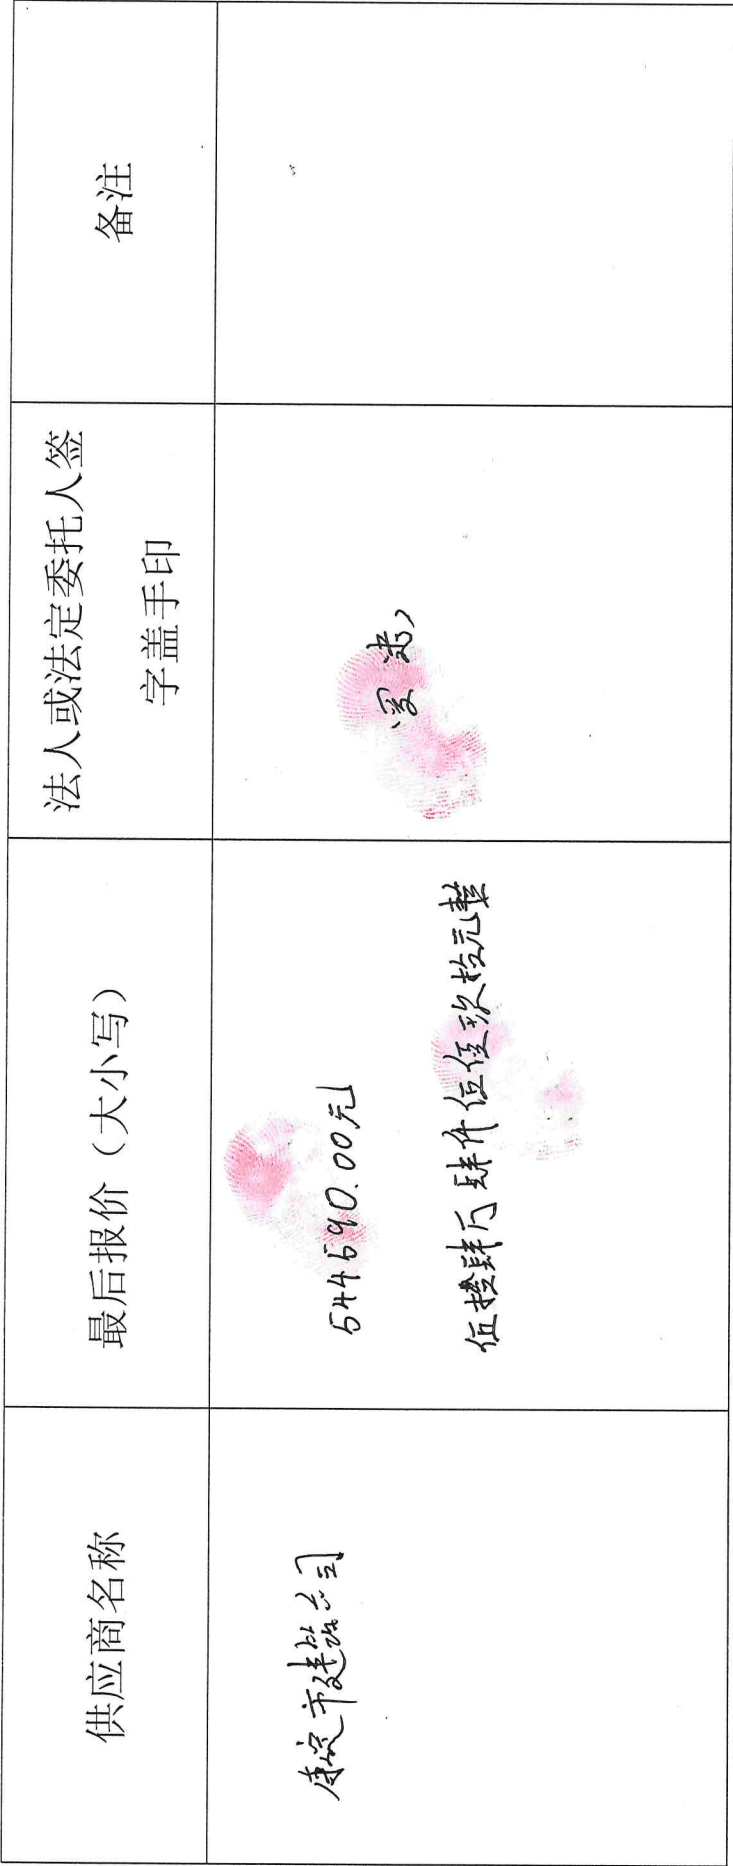 供应商名称
最后报价（大小写）
法人或法定委托人签
字盖手印
备注
康定市建筑公司
544590.00元
伍拾肆万肆仟伍佰玖拾元整